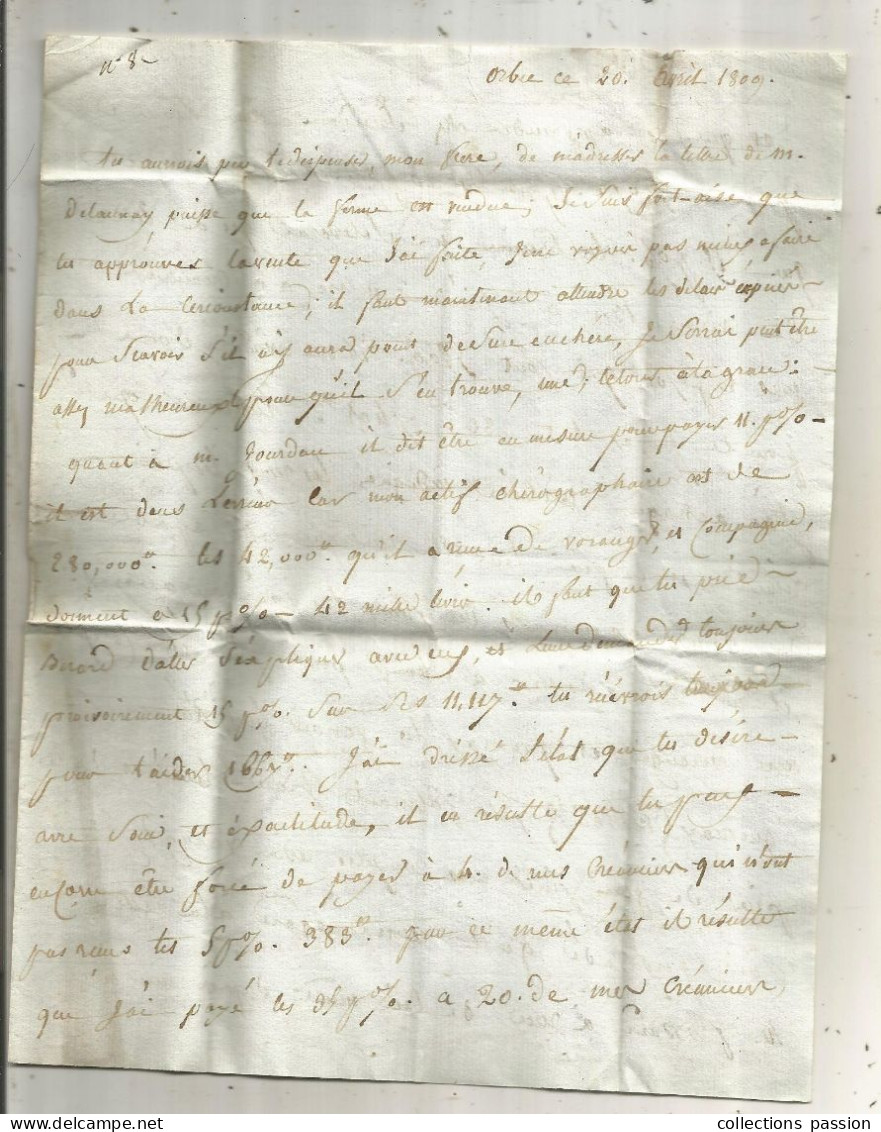 n° 8
Orbec ce 20. Avril 1809.
tu aurois peu te dispenser, mon frere, de m'adresser la lettre de M.
Delaunay puisse que la ferme est vendue; Je suis fort-aise que
tu approuves la vente que J'ai faite, Je ne voyois pas mieux a faire
dans la Circonstance; il faut maintenant attendre les délais
pour Scavoir S'il n'y aura point de Sure enchère, Je Serai peut être
assez malheureux pour qu'il S'en trouve une; à la grace:
quant à M. Jourdan il dit être en mesure pour payer 11. p% -
il est dans L'erreur Car mon actif chirographaire est de
280,000". les 42,000". qu'il a de et Compagnie,
donnent a 15 p% - 42 mille livres. il faut que tu prie -
d'aller S'expliquer avec eux, et Leur demander toujours
provisoirement 15 p%. Sur Les 11,117." tu
pour t'aider 1667". J'ai dressé L'état que tu désire -
avec Soin, et éxactitude, il en résulte que tu peux -
encore être forcé de payer à 4. de mes Créanciers qui n'ont
pas reçus les 5 p%. 383". par ce même état il résulte
que J'ai payé les p%. a 20. de mes Créanciers
collections passion